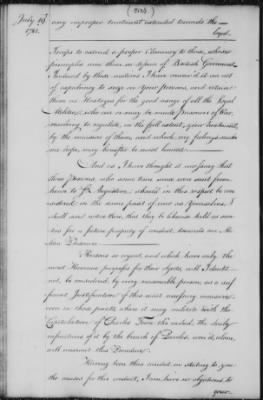 July 29th
1781.
(213)
any improper treatment extended towards the
loyal
Troops to extend a proper Clemency to those, whose
principles are them in defence of British Government
Induced by these motives I have conceived it an act
of expediency to seize on your persons, and retain
them as Hostages for the good usage of all the Loyal
Militia, who are or may be made prisoners of War,
resolving to regulate, in the full extent, your treatment
by the measure of theirs, and which my feelings make
me hope, may hereafter be most lenient.
And as I have thought it necessary that
those persons, who some time since were sent from
hence to St. Augustine, should in this respect be con
sidered in the same point of view as yourselves. I
shall send notice there, that they be likewise held as secu
rities for a future propriety of conduct towards our Mi
litia Prisoners.
Reasons so urgent, and which have only the
most Humane purposes for their objects, will I doubt
not, be considered by every reasonable person, as a suf
ficient Justification of this most necessary measure,
even in those points where it may militate with the
Capitulation of Charles Town, tho' indeed, the daily
infractions of it by the breach of Paroles, would alone,
well warrant this Procedure.
Having been thus candid in stating to you
the causes for this conduct, I can have no objections to
your